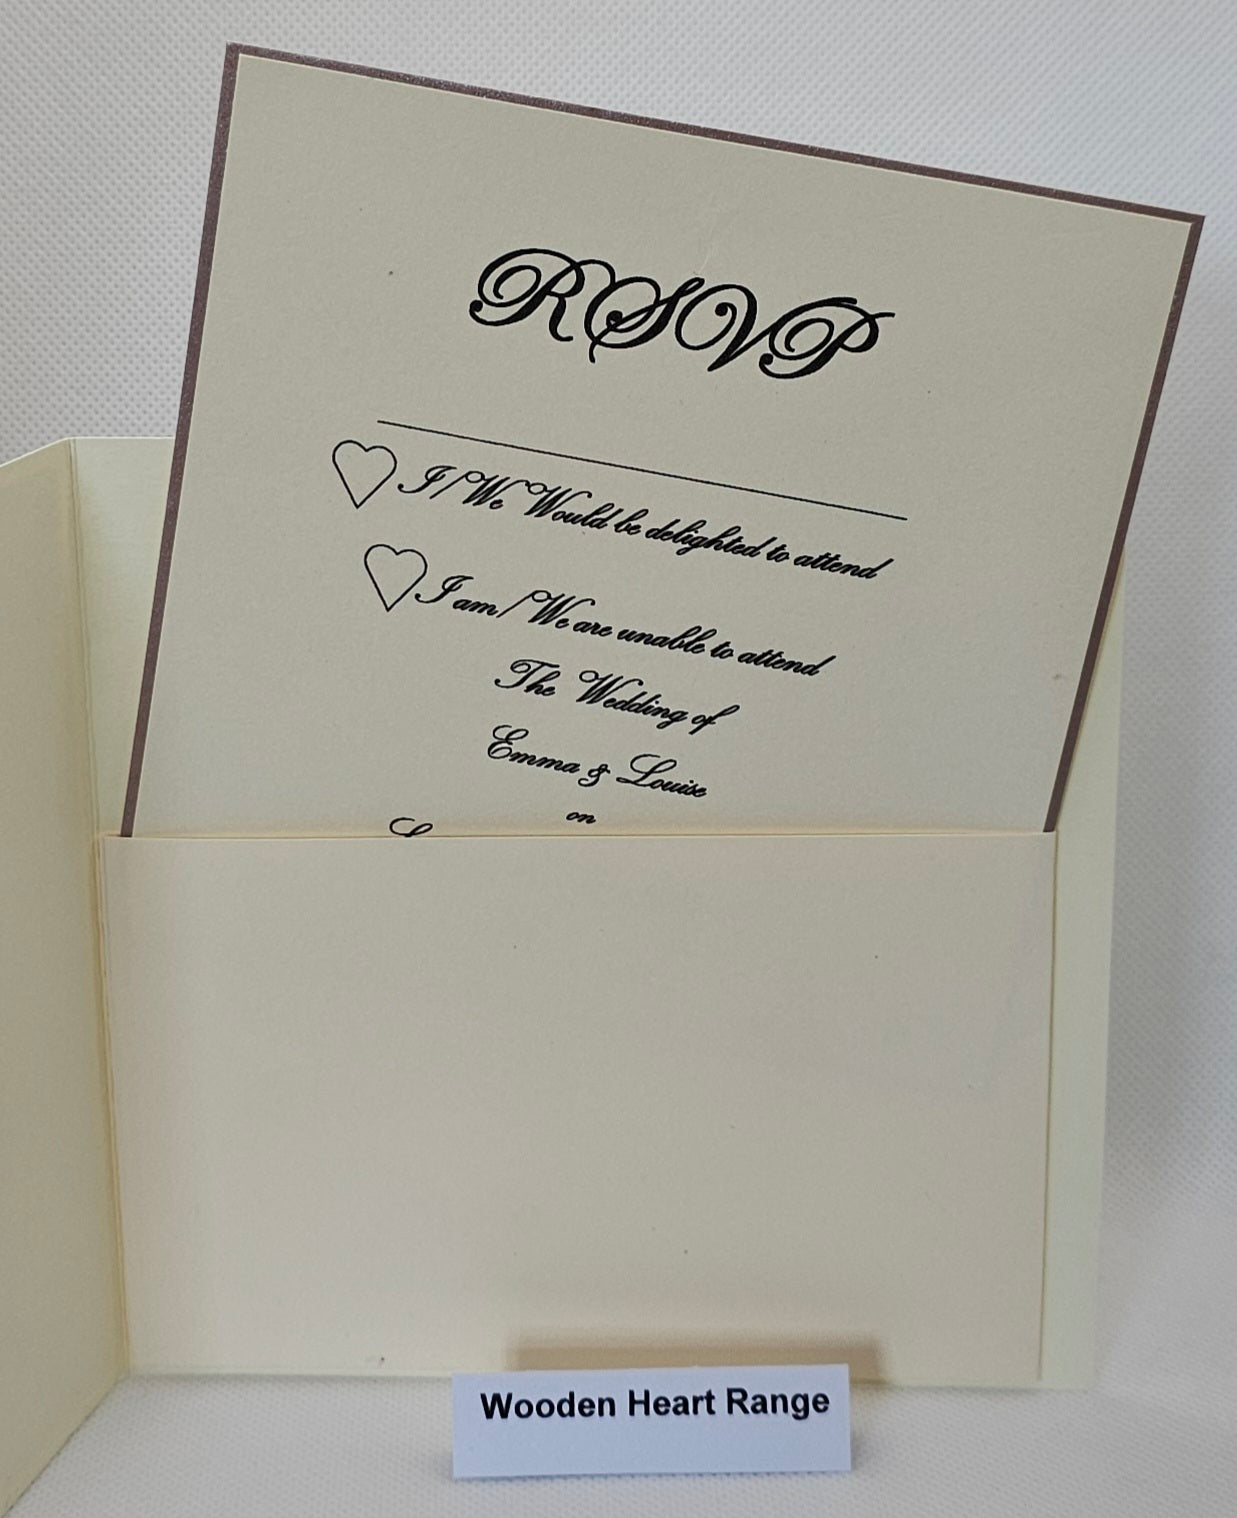 RSVP
I/We Would be delighted to attend
I am/We are unable to attend
The Wedding of
Emma & Louise
on
Wooden Heart Range